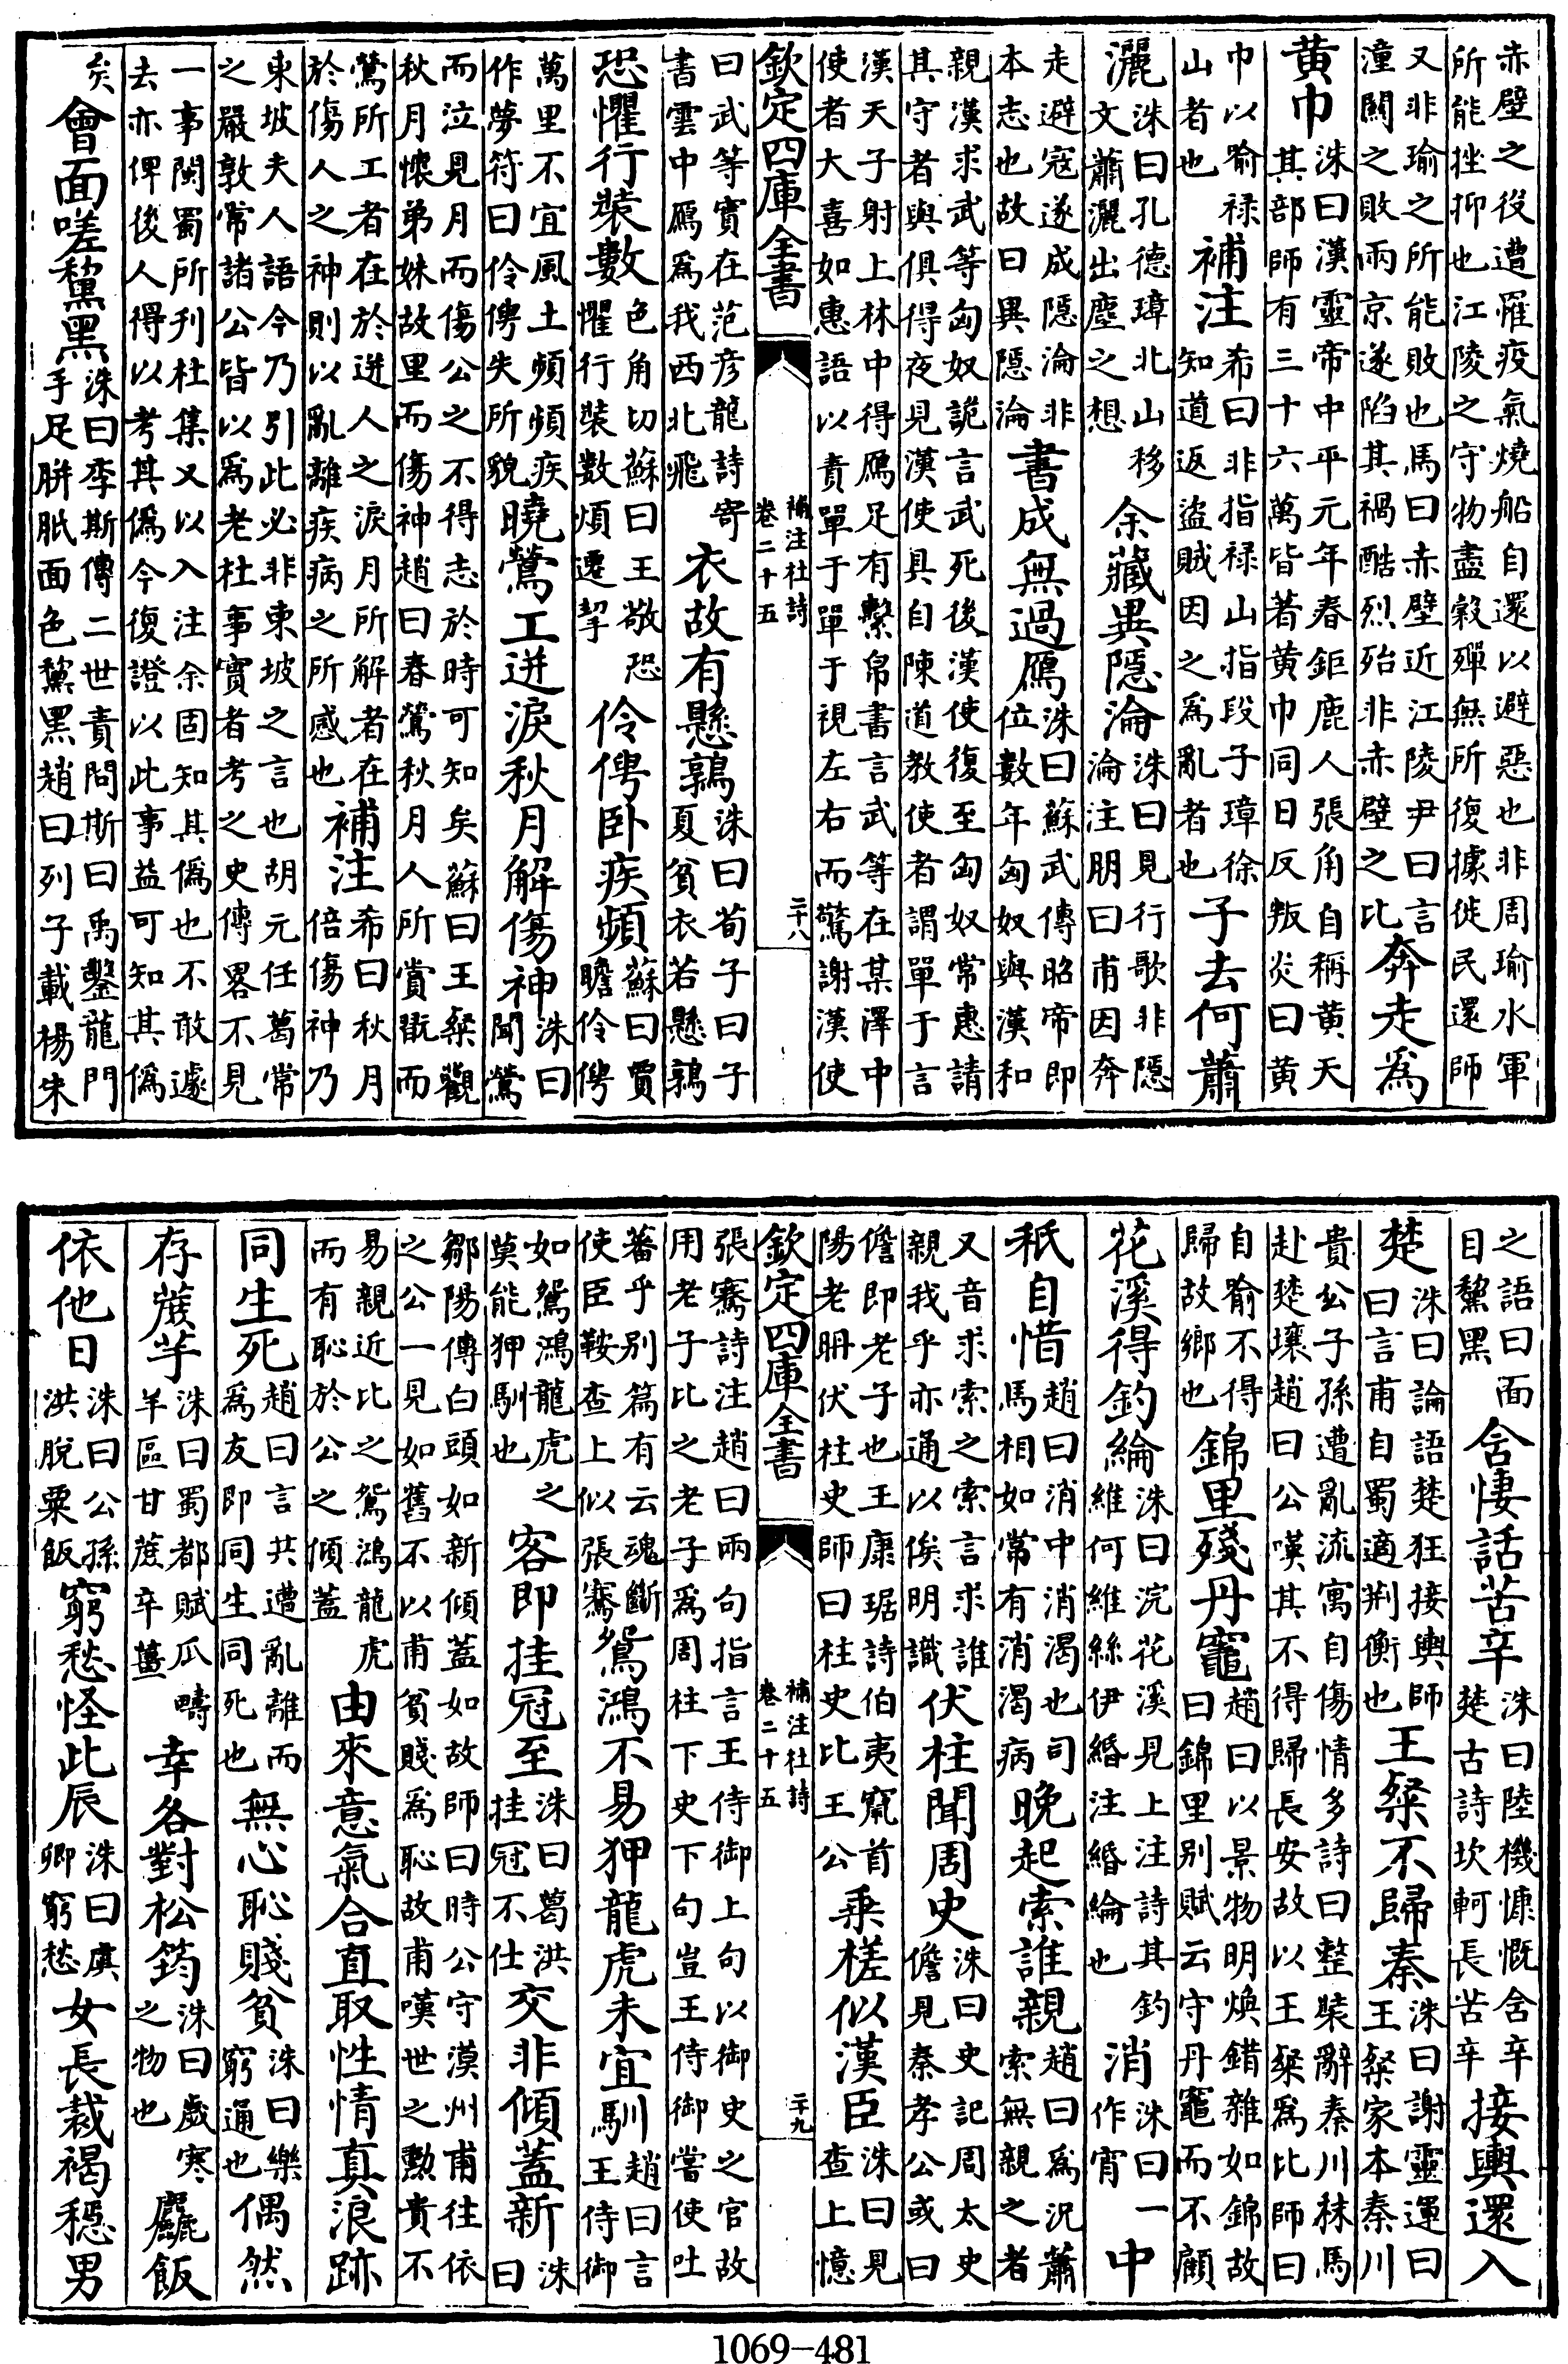 赤壁之役遭罹疫氣燒船自還以避惡也非周瑜水軍
所能挫抑也江陵之守物盡穀殫無所復據徙民還師
又非瑜之所能敗也馬曰赤壁近江陵尹曰言
潼關之敗兩京遂陷其禍酷烈殆非赤壁之比
奔走為
黄巾
洙曰漢靈帝中平元年春鉅鹿人張角自稱黄天
其部師有三十六萬皆著黄巾同日反叛炎曰黄
巾以喻祿
山者也
補注
希曰非指祿山指段子璋徐
知道返盜賊因之為亂者也
子去何蕭
灑
洙曰孔德璋北山移
文蕭灑出塵之想
余藏異隱淪
洙曰見行歌非隱
淪注朋曰甫因奔
走避寇遂成隱淪非
本志也故曰異隱淪
書成無過鴈
洙曰蘇武傳昭帝即
位數年匈奴與漢和
親漢求武等匈奴詭言武死後漢使復至匈奴常惠請
其守者與俱得夜見漢使具自陳道教使者謂單于言
漢天子射上林中得鴈足有繫帛書言武等在某澤中
使者大喜如惠語以責單于單于視左右而驚謝漢使
欽定四庫全書
補注杜詩
卷二十五
二十八
曰武等實在范彦龍詩寄
書雲中鴈為我西北飛
衣故有懸鶉
洙曰荀子曰子
夏貧衣若懸鶉
恐懼行裝數
色角切蘇曰王敬恐
懼行裝數煩遷挈
伶俜卧疾頻
蘇曰賈
瞻伶俜
萬里不宜風土頻頻疾
作夢符曰伶俜失所貌
曉鶯工迸淚秋月解傷神
洙曰
聞鶯
而泣見月而傷公之不得志於時可知矣蘇曰王粲觀
秋月懷弟妹故里而傷神趙曰春鶯秋月人所賞翫而
鶯所工者在於迸人之淚月所解者在
於傷人之神則以亂離疾病之所感也
補注
希曰秋月
倍傷神乃
東坡夫人語今乃引此必非東坡之言也胡元任葛常
之嚴敦常諸公皆以為老杜事實者考之史傳畧不見
一事閩蜀所刊杜集又以入注余固知其偽也不敢遽
去亦俾後人得以考其偽今復證以此事益可知其偽
矣
會面嗟黧黑
洙曰李斯傳二世責問斯曰禹鑿龍門
手足胼胝面色黧黑趙曰列子載楊朱
之語曰面
目黧黑
含悽話苦辛
洙曰陸機慷慨含辛
楚古詩坎軻長苦辛
接輿還入
楚
洙曰論語楚狂接輿師
曰言甫自蜀適荆衡也
王粲不歸秦
洙曰謝靈運曰
王粲家本秦川
貴公子孫遭亂流寓自傷情多詩曰整裝辭秦川秣馬
赴楚壤趙曰公嘆其不得歸長安故以王粲為比師曰
自喻不得
歸故鄉也
錦里殘丹竈
趙曰以景物明煥錯雜如錦故
曰錦里别賦云守丹竈而不顧
花溪得釣綸
洙曰浣花溪見上注詩其釣
維何維絲伊緡注緡綸也
消
洙曰一
作宵
中
秖自惜
趙曰消中消渴也司
馬相如常有消渴病
晚起索誰親
趙曰為況蕭
索無親之者
又音求索之索言求誰
親我乎亦通以俟明識
伏柱聞周史
洙曰史記周太史
儋見秦孝公或曰
儋即老子也王康琚詩伯夷竄首
陽老聃伏柱史師曰柱史比王公
乗槎似漢臣
洙曰見
查上憶
欽定四庫全書
補注杜詩
卷二十五
二十九
張騫詩注趙曰兩句指言王侍御上句以御史之官故
用老子比之老子為周柱下史下句豈王侍御嘗使吐
蕃乎别篇有云魂斷
使臣鞍查上似張騫
鴛鴻不易狎龍虎未宜馴
趙曰言
王侍御
如鴛鴻龍虎之
莫能狎馴也
客即挂冠至
洙曰葛洪
挂冠不仕
交非傾蓋新
洙
曰
鄒陽傳白頭如新傾蓋如故師曰時公守漠州甫往依
之公一見如舊不以甫貧賤為恥故甫嘆世之勲貴不
易親近比之鴛鴻龍虎
而有恥於公之傾蓋
由來意氣合直取性情真浪跡
同生死
趙曰言共遭亂離而
為友即同生同死也
無心恥賤貧
洙曰樂
窮通也
偶然
存蔗芋
洙曰蜀都賦瓜疇
芋區甘蔗辛薑
幸各對松筠
洙曰歲寒
之物也
麤飯
依他日
洙曰公孫
洪脫粟飯
窮愁怪此辰
洙曰虞
卿窮愁
女長裁褐穩男
1069-481